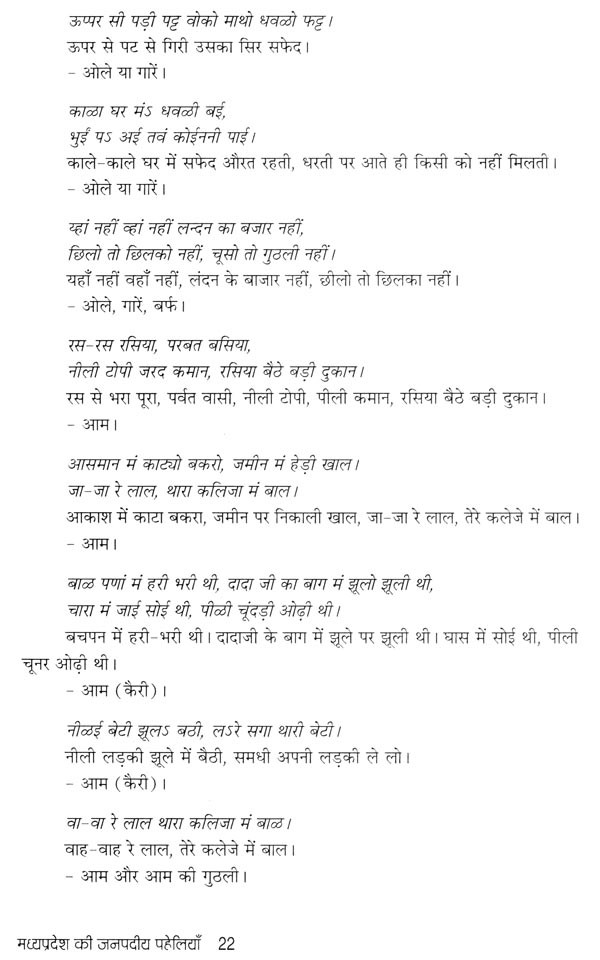 ऊप्पर सी पड़ी पट्ट वोको माथो धवळो फट्ट।
ऊपर से पट से गिरी उसका सिर सफेद।
– ओले या गारें।
काळा घर मंऽ धवळी बई,
भुईं पऽ अई तवं कोईननी पाई।
काले-काले घर में सफेद औरत रहती, धरती पर आते ही किसी को नहीं मिलती।
– ओले या गारें।
य्हां नहीं व्हां नहीं लन्दन का बजार नहीं,
छिलो तो छिलको नहीं, चूसो तो गुठली नहीं।
यहाँ नहीं वहाँ नहीं, लंदन के बाजार नहीं, छीलो तो छिलका नहीं।
– ओले, गारें, बर्फ।
रस-रस रसिया, परबत बसिया,
नीली टोपी जरद कमान, रसिया बैठे बड़ी दुकान।
रस से भरा पूरा, पर्वत वासी, नीली टोपी, पीली कमान, रसिया बैठे बड़ी दुकान।
– आम।
आसमान मं काट्यो बकरो, जमीन मं हेड़ी खाल।
जा-जा रे लाल, थारा कलिजा मं बाल।
आकाश में काटा बकरा, जमीन पर निकाली खाल, जा-जा रे लाल, तेरे कलेजे में बाल।
– आम।
बाळ पणां मं हरी भरी थी, दादा जी का बाग मं झूलो झूली थी,
चारा मं जाई सोई थी, पीळी चूंदड़ी ओढ़ी थी।
बचपन में हरी-भरी थी। दादाजी के बाग में झूले पर झूली थी। घास में सोई थी, पीली
चूनर ओढ़ी थी।
– आम (कैरी)।
नीळई बेटी झूलऽ बठी, लऽरे सगा थारी बेटी।
नीली लड़की झूले में बैठी, समधी अपनी लड़की ले लो।
– आम (कैरी)।
वा-वा रे लाल थारा कलिजा मं बाळ।
वाह-वाह रे लाल, तेरे कलेजे में बाल।
– आम और आम की गुठली।
मध्यप्रदेश की जनपदीय पहेलियाँ 22